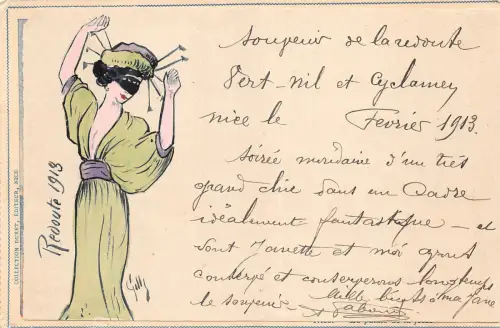 Souvenir de la redoute
Vert-Nil et Cyclamen
nice le Fevrier 1913.
soirée mondaine d'un très
grand chic dans un Cadre
idéalement fantastique — et
dont Janette et moi ayant
conservé et conserverons longtemps
le souvenir
Mille à ma Jane
Redoute 1913
COLLECTION EDITEUR, NICE